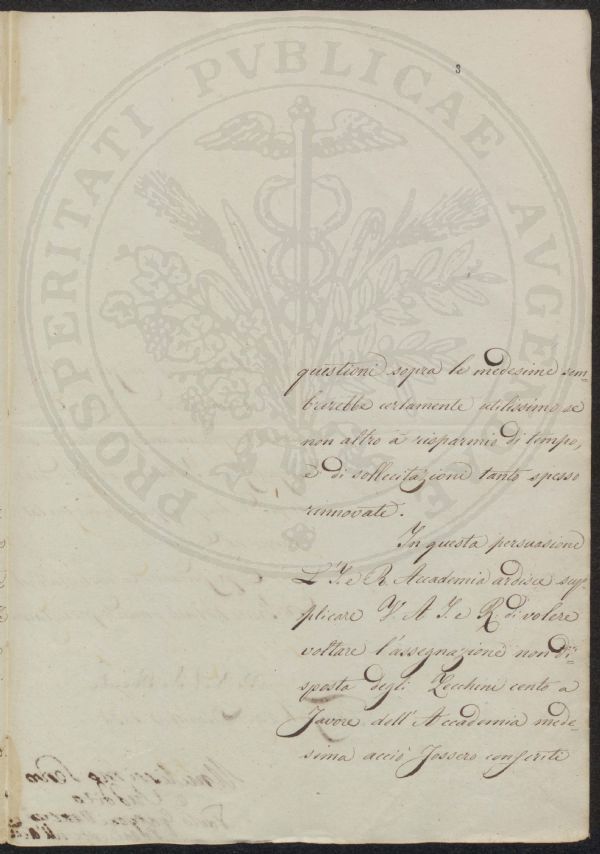 3
PROSPERITATI PVBLICAE AVGENDAE
questioni sopra le medesime sem-
brerebbe certamente utilissimo se
non altro a risparmio di tempo,
e di sollecitazioni tanto spesso
rinnovate.
In questa persuasione
L'I. e R. Accademia ardisce sup-
plicare V. A. I. e R. di volere
voltare l'assegnazione non di-
sposta degli Zecchini cento a
favore dell'Accademia mede-
sima acciò fossero conferiti